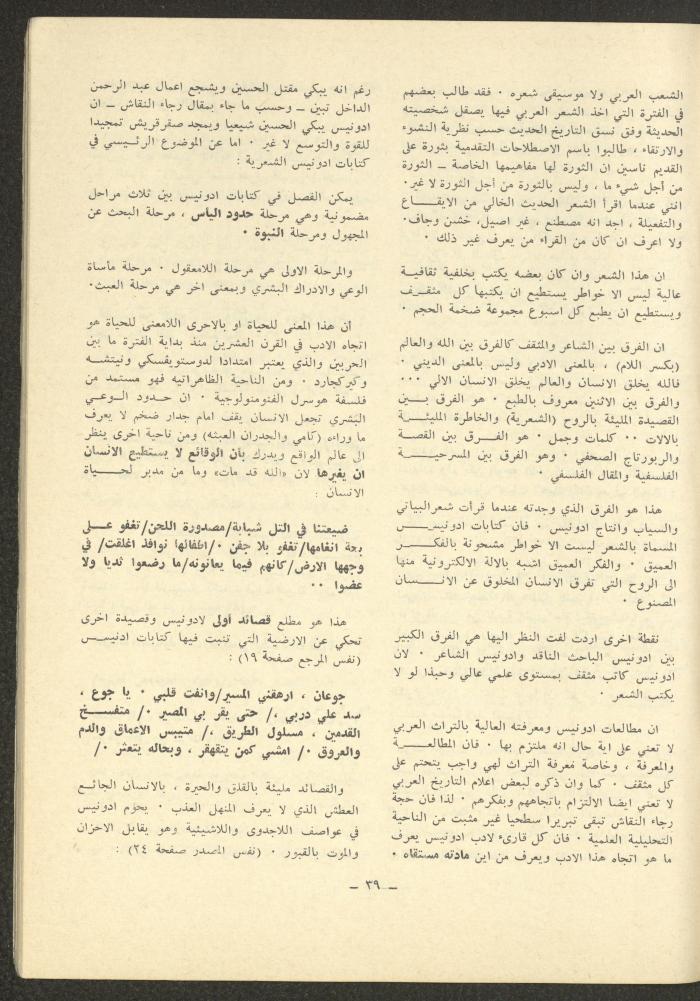 الشعب العربي ولا موسيقى شعره ٠ فقد طالب بعضهم
في الفترة التي اخذ الشعر العربي فيها يصقل شخصيته
الحديثة وفق نسق التاريخ الحديث حسب نظرية النشوء
والارتقاء ، طالبوا باسم الاصطلاحات التقدمية بثورة على
القديم ناسين ان الثورة لها مفاهيمها الخاصة ــ الثورة
من أجل شيء ما ، وليس بالثورة من أجل الثورة لا غير٠
انني عندما اقرأ الشعر الحديث الخالي من الايقـــاع
والتفعيلة ، اجد انه مصطنع ، غير اصيل، خشن وجاف٠
ولا اعرف ان كان من القراء من يعرف غير ذلك ٠
ان هذا الشعر وان كان بعضه يكتب بخلفية ثقافيـة
عالية ليس الا خواطر يستطيع ان يكتبها كل مثقـف
ويستطيع ان يطبع كل اسبوع مجموعة ضخمة الحجم ٠
ان الفرق بين الشاعر والمثقف كالفرق بين الله والعالم
(بكسر اللام) ، بالمعنى الادبي وليس بالمعنى الديني ٠
فالله يخلق الانسان والعالم يخلق الانسان الآلي ٠٠٠
والفرق بين الاثنين معروف بالطبع ٠ هو الفرق بــين
القصيدة المليئة بالروح (الشعرية) والخاطرة المليئــة
بالآلات ٠٠ كلمات وجمل ٠ هو الفــرق بين القصــة
والربورتاج الصحفي ٠ وهو الفرق بين المسرحيـــة
الفلسفية والمقال الفلسفي ٠
هذا هو الفرق الذي وجدته عندما قرأت شعر البياتي
والسياب وانتاج ادونيس ٠ فان كتابات ادونيـــس
المسماة بالشعر ليست الا خواطر مشحونة بالفكـــر
العميق ٠ والفكر العميق اشبه بالآلة الالكترونية منها
الى الروح التي تفرق الانسان المخلوق عن الانـــسان
المصنوع ٠
نقطة اخرى اردت لفت النظر اليها هي الفرق الكبير
بين ادونيس الباحث الناقد وادونيس الشاعر ٠ لان
ادونيس كاتب مثقف بمستوى علمي عالي وحبذا لو لا
يكتب الشعر ٠
ان مطالعات ادونيس ومعرفته العالية بالتراث العربي
لا تعني على اية حال انه ملتزم بها ٠ فان المطالعـــة
والمعرفة ، وخاصة معرفة التراث لهي واجب يتحتم على
كل مثقف ٠ كما وان ذكره لبعض اعلام التاريخ العربي
لا تعني ايضا الالتزام باتجاههم وبفكرهم ٠ لذا فان حجة
رجاء النقاش تبقى تبريرا سطحيا غير مثبت من الناحية
التحليلية العلمية ٠ فان كل قارىء لادب ادونيس يعرف
ما هو اتجاه هذا الادب ويعرف من اين مادته مستقاه ٠
رغم انه يبكي مقتل الحسين ويشجع اعمال عبد الرحمن
الداخل تبين ــ وحسب ما جاء بمقال رجاء النقاش ــ ان
ادونيس يبكي الحسين شيعيا ويمجد صقر قريش تمجيدا
للقوة والتوسع لا غير ٠ اما عن الموضوع الرئـيسي في
كتابات ادونيس الشعرية :
يمكن الفصل في كتابات ادونيس بين ثلاث مراحل
مضمونية وهي مرحلة حدود اليأس ، مرحلة البحث عن
المجهول ومرحلة النبوة ٠
والمرحلة الاولى هي مرحلة اللامعقول ٠ مرحلة مأساة
الوعي والادراك البشري وبمعنى اخر هي مرحلة العبث٠
ان هذا المعنى للحياة او بالاحرى اللامعنى للحياة هو
اتجاه الادب في القرن العشرين منذ بداية الفترة ما بين
الحربين والذي يعتبر امتدادا لدوستويفسكي ونيتشـه
وكيركجارد ٠ ومن الناحية الظاهراتيه فهو مستمد من
فلسفة هوسرل الفنومنولوجية ٠ ان حـدود الـوعـي
البشري تجعل الانسان يقف امام جدار ضخم لا يعرف
ما وراءه (كامي والجدران العبثه) ومن ناحية اخرى ينظر
الى عالم الواقع ويدرك بأن الوقائع لا يستطيع الانسان
ان يغيرها لان «الله قد مات» وما من مدبر لحـــياة
الانسان :
ضيعتنا في التل شبابة/مصدورة اللحن/تغفو عــلى
بحة انغامها/تغفو بلا جفن ٠/اطفالها نوافذ اغلقت/ في
وجهها الارض/كأنهم فيما يعانونه/ما رضعوا ثديا ولا
عضوا ٠٠
هذا هو مطلع قصائد أولى لادونيس وقصيدة اخرى
تحكي عن الارضية التي تنبت فيها كتابات ادنيـــس
(نفس المرجع صفحة ١٩) :
جوعان ، ارهقني المسير/وانفت قلبي ٠ يا جوع ،
سد علي دربي ،/ حتى يقر بي المصير ٠/ متفســـخ
القدمين ، مسلول الطريق ،/ متيبس الاعماق والدم
والعروق ٠/ امشي كمن يتقهقر ، وبحاله يتعثر ٠/
والقصائد مليئة بالقلق والحيرة ، بالانسان الجائـع
العطش الذي لا يعرف المنهل العذب ٠ يحوم ادونيس
في عواصف اللاجدوى واللاشيئية وهو يقابل الاحزان
والموت بالقبور ٠ (نفس المصدر صفحة ٢٤) :
ــ ٣٩ ــ